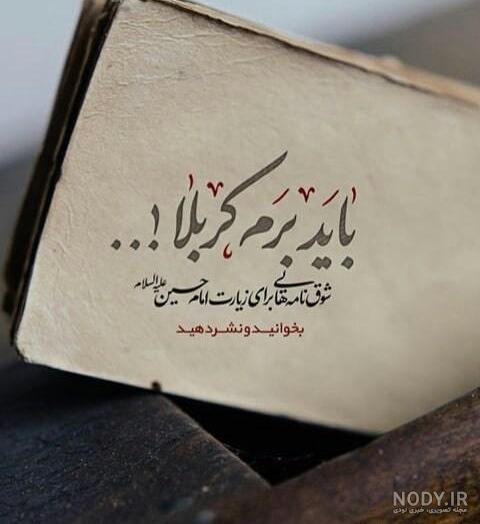 باید بَرَم کربلا !...
شوق نامه هائی برای زیارت امام حسین علیه السلام
بخوانید و نشر دهید
NODY.IR
مجله تصویری، خبری نودی